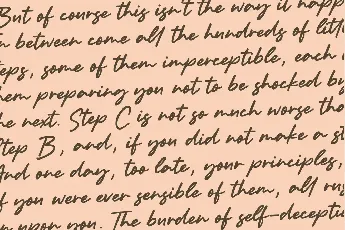 But of course this isn't the way it happ
n between come all the hundreds of littl
teps, some of them imperceptible, each
hem preparing you not to be shocked by
he next. Step C is not so much worse tha
Step B, and, if you did not make a st
And one day, too late, your principles,
f you were ever sensible of them, all rus
n upon you. The burden of self-deceptio